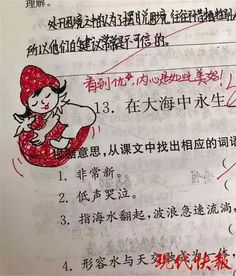 理解。
处于困境之中的人为了摆脱困境，往往不惜
所以他们的建议常常是不可信的。
看到优+，内心是如此美好！
13. 在大海中永生
意思，从课文中找出相应的词语
1. 非常新。
2. 低声哭泣。
3. 指海水翻起，波浪急速流淌，
4. 形容水与天交
现代快报